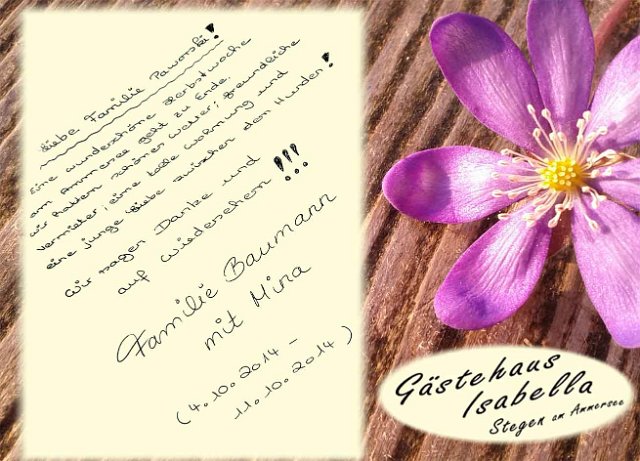 Liebe Familie Paworski!
Eine wunderschöne Herbstwoche
am Ammersee geht zu Ende.
Wir hatten schönes Wetter; freundliche
Vermieter; eine tolle Wohnung und
eine junge Liebe zwischen den Hunden!
Wir sagen Danke und
auf Wiedersehen!!!
Familie Baumann
mit Mira
(4.10.2014 -
11.10.2014)
Gästehaus
Isabella
Stegen am Ammersee